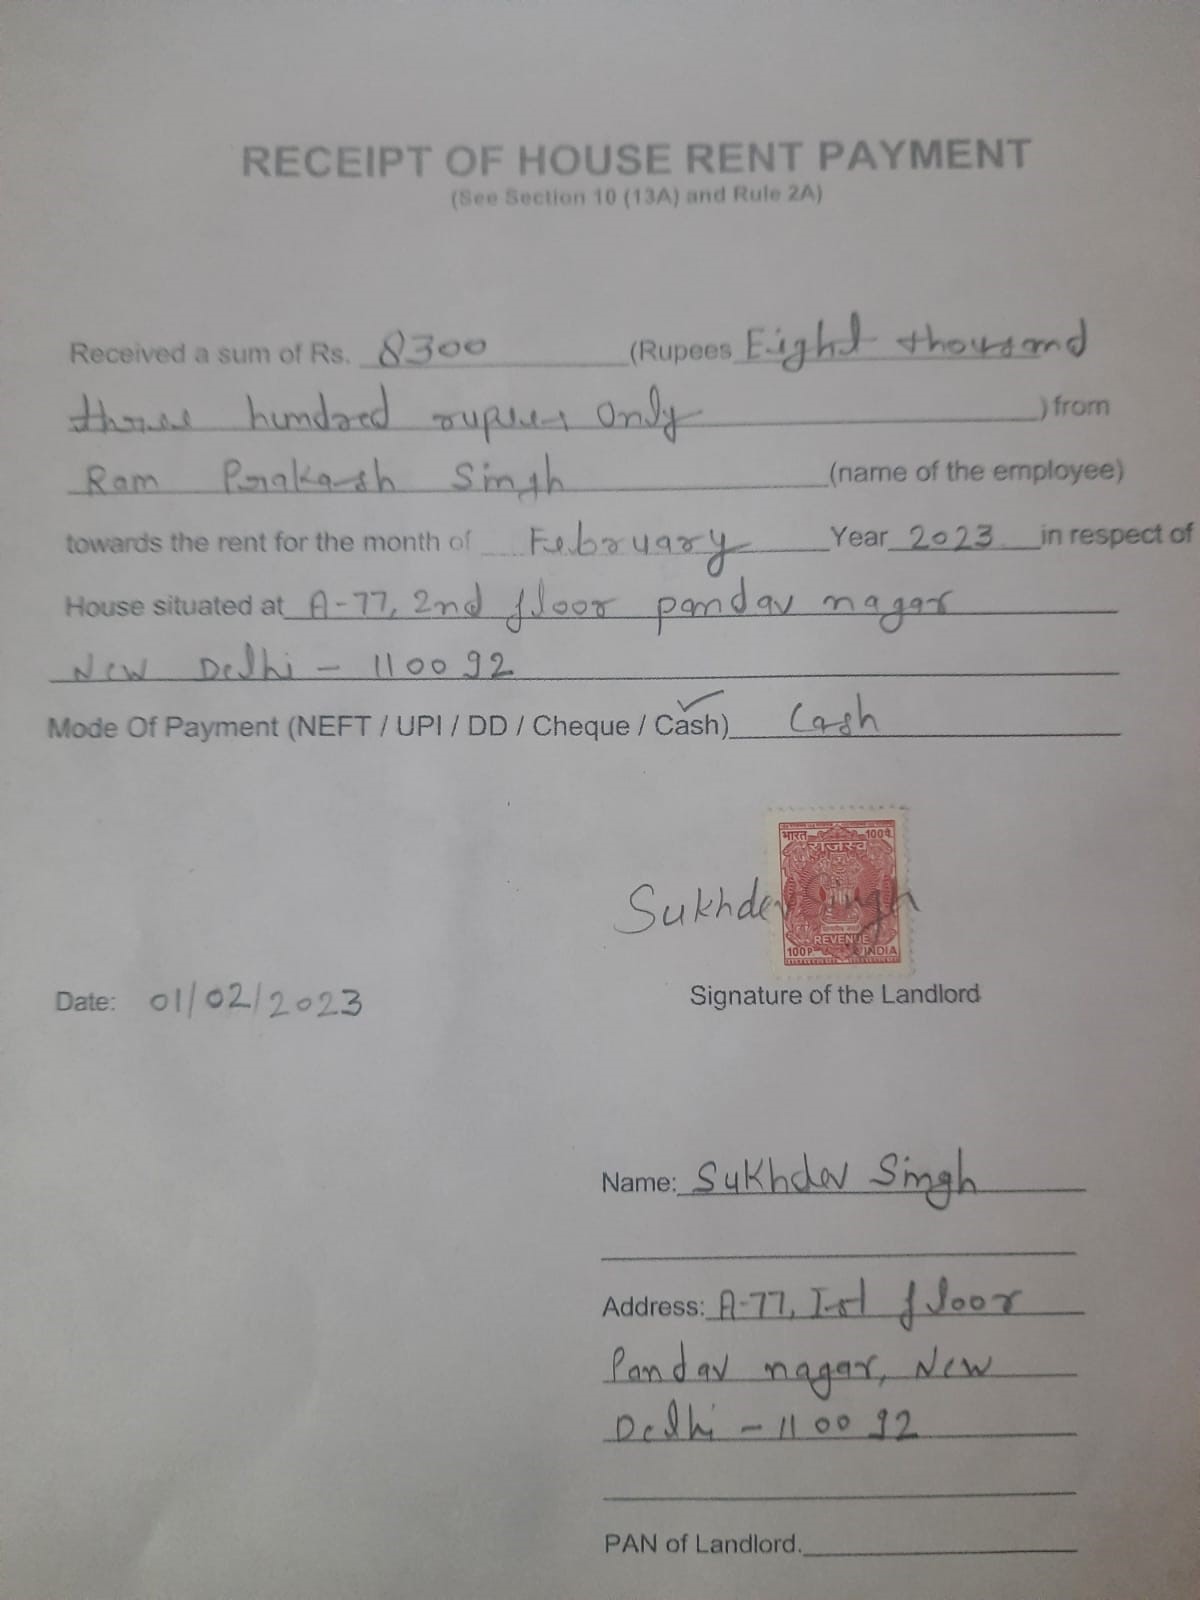 RECEIPT OF HOUSE RENT PAYMENT
(See Section 10 (13A) and Rule 2A)
Received a sum of Rs. 8300 (Rupees Eight thousand
three hundred rupees only ) from
Ram Prakash Singh (name of the employee)
towards the rent for the month of February Year 2023 in respect of
House situated at A-77, 2nd floor pandav nagar
New Delhi - 110092
Mode Of Payment (NEFT / UPI / DD / Cheque / Cash) Cash
भारत 100पै.
राजस्व
Sukhdev Singh
REVENUE
100P INDIA
Date: 01/02/2023 Signature of the Landlord
Name: Sukhdev Singh
Address: A-77, Ist floor
Pandav nagar, New
Delhi - 110092
PAN of Landlord.